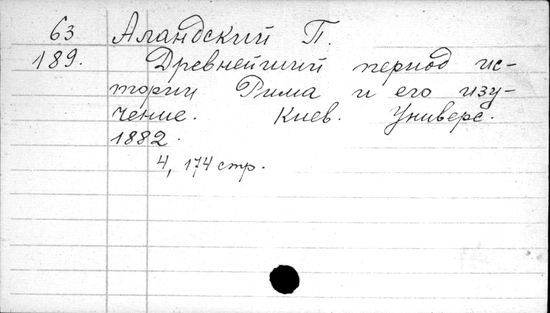 63 Аландский П.
189. Древнейший период ис-
тории Рима и его изу-
чение. Киев. Универс.
1882.
4, 174 стр.